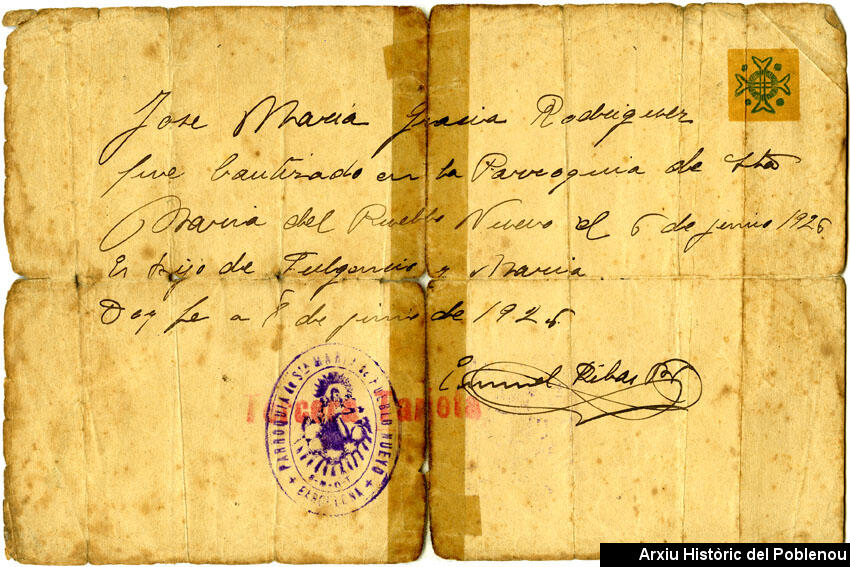 Jose Maria Gracia Rodriguez
fue bautizado en la Parroquia de Sta
Maria del Pueblo Nuevo el 6 de junio 1926
Es hijo de Fulgencio y Maria.
Doy fe a 8 de junio de 1926.
Ribas Pbro
PARROQUIA de Sta MARIA de PUEBLO NUEVO
BARCELONA
Tercera
Arxiu Històric del Poblenou